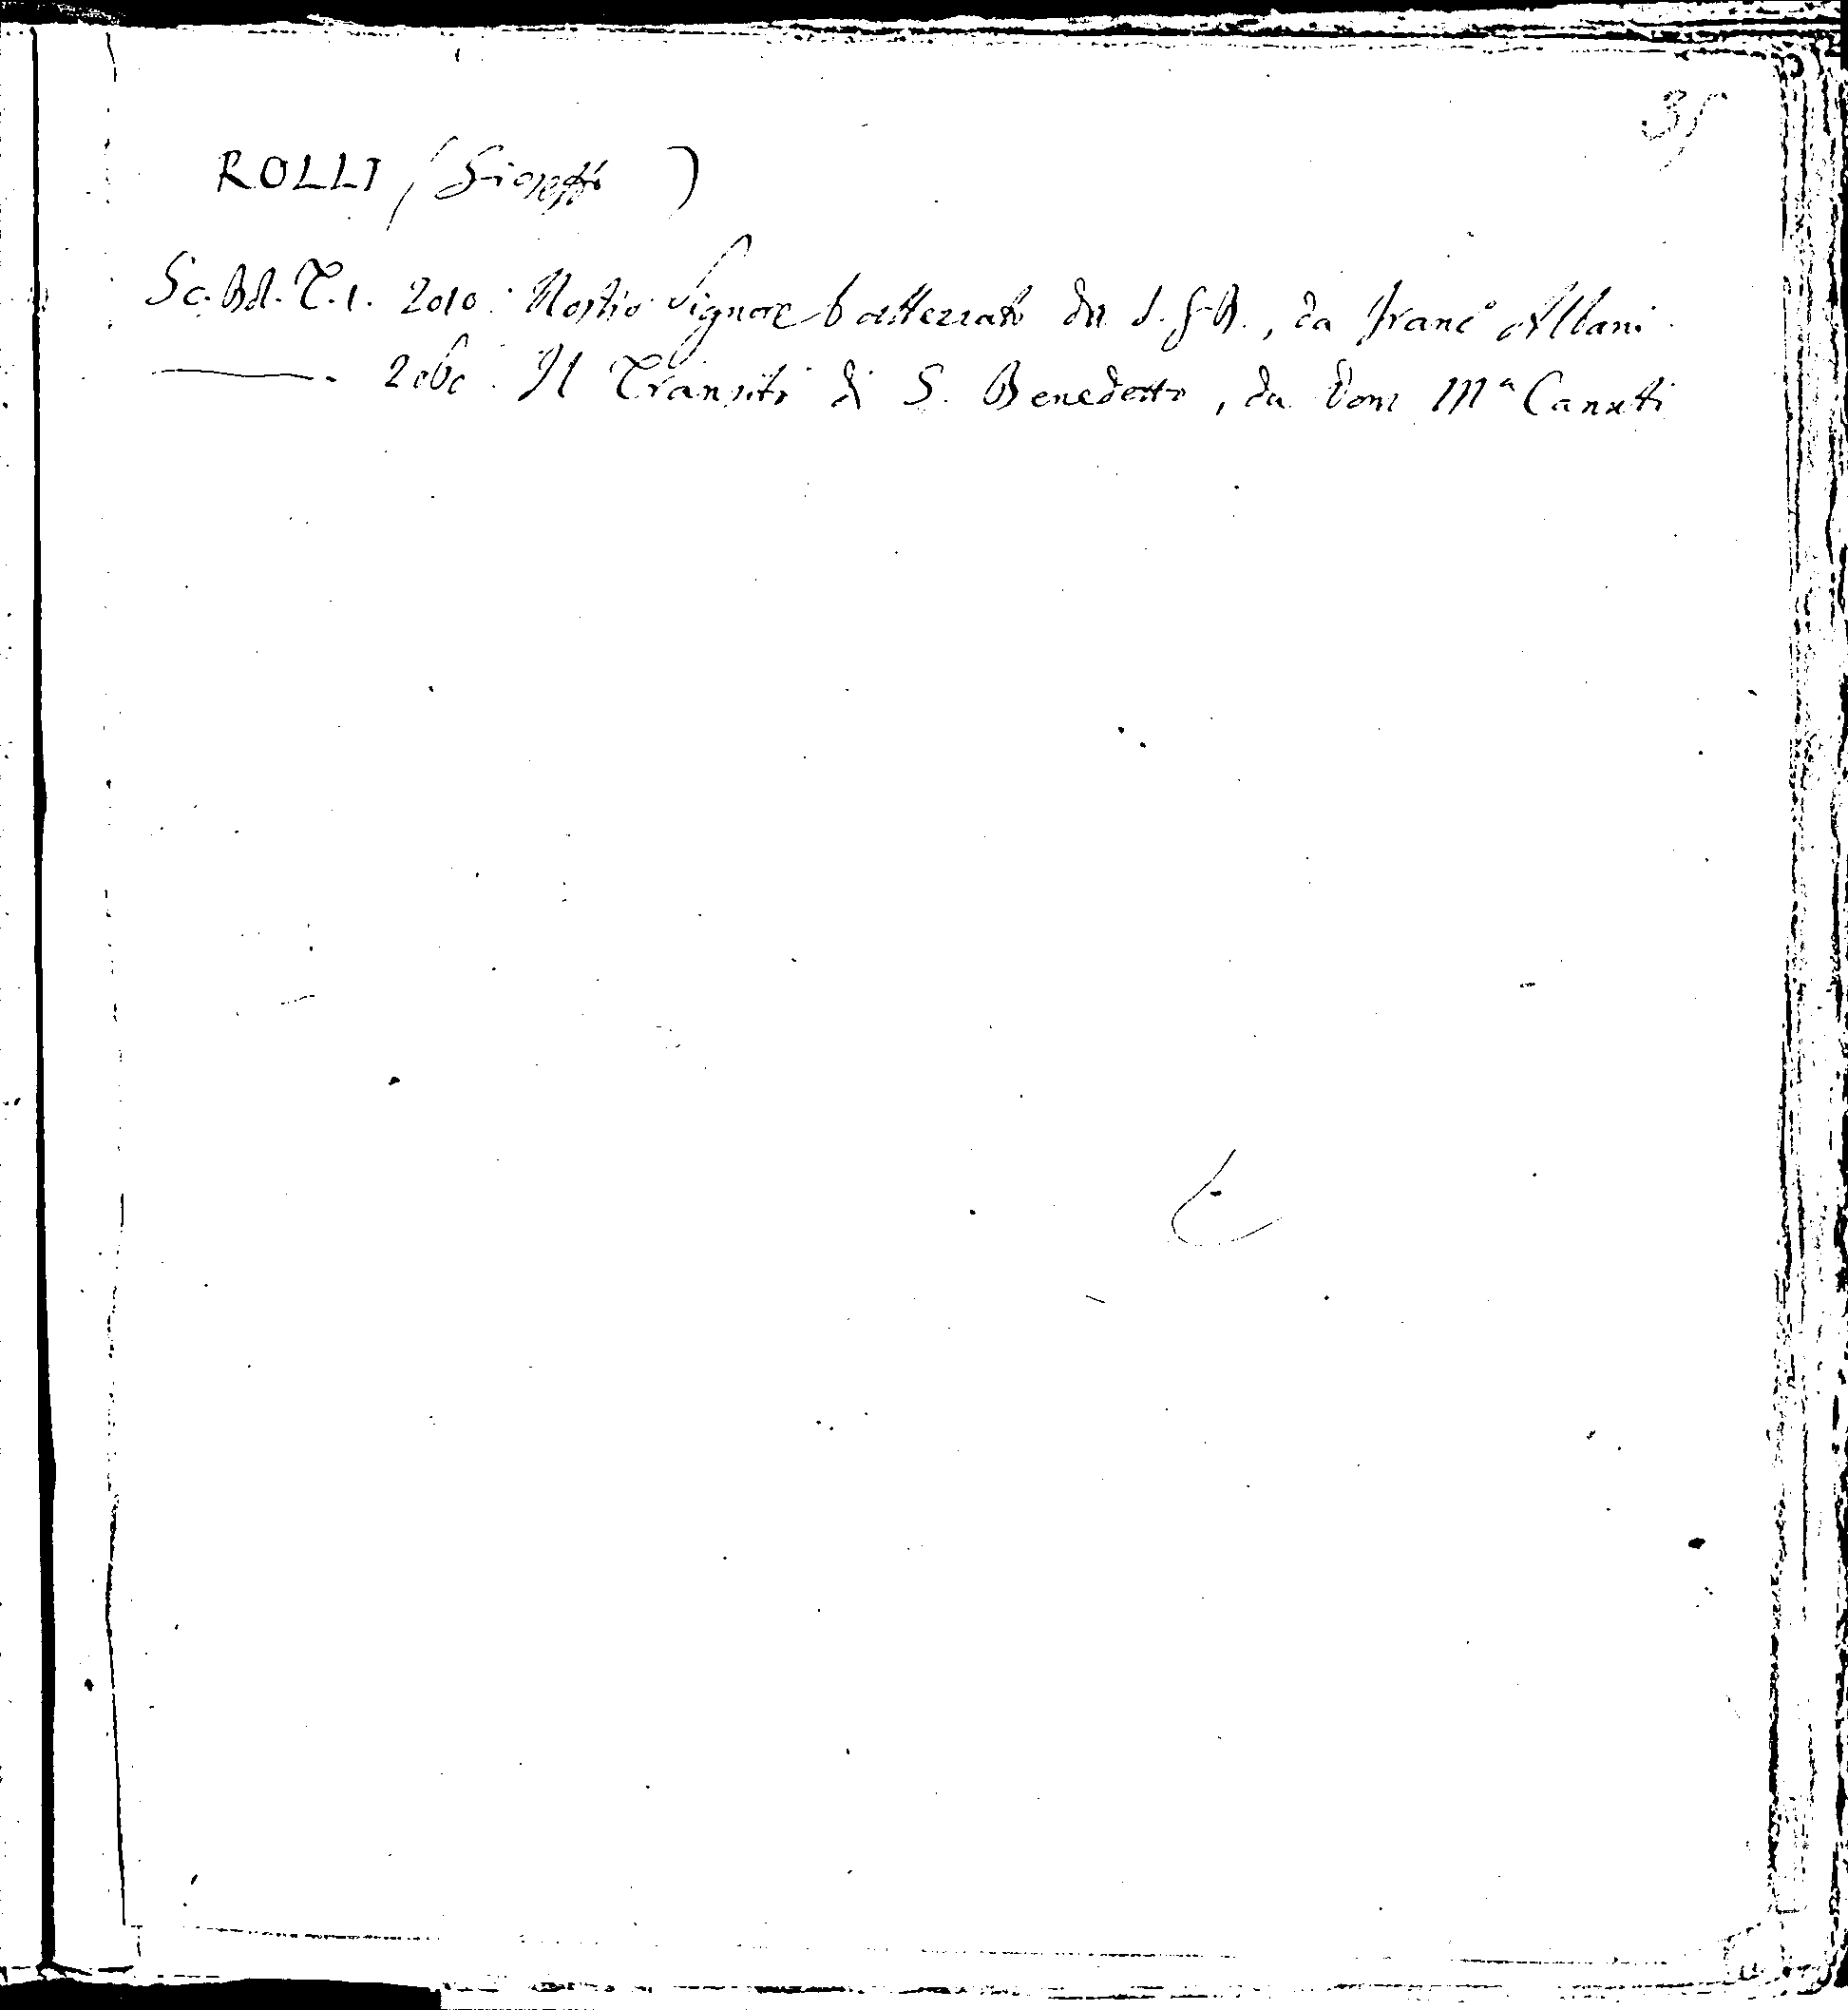 35
ROLLI (Gioseffo)
Sc. Bol. T. 1. 2010. Nostro Signore battezzato da S. G. B., da Franc.º Albani.
———. 2060. Il Transito di S. Benedetto, da Dom Mª Canuti